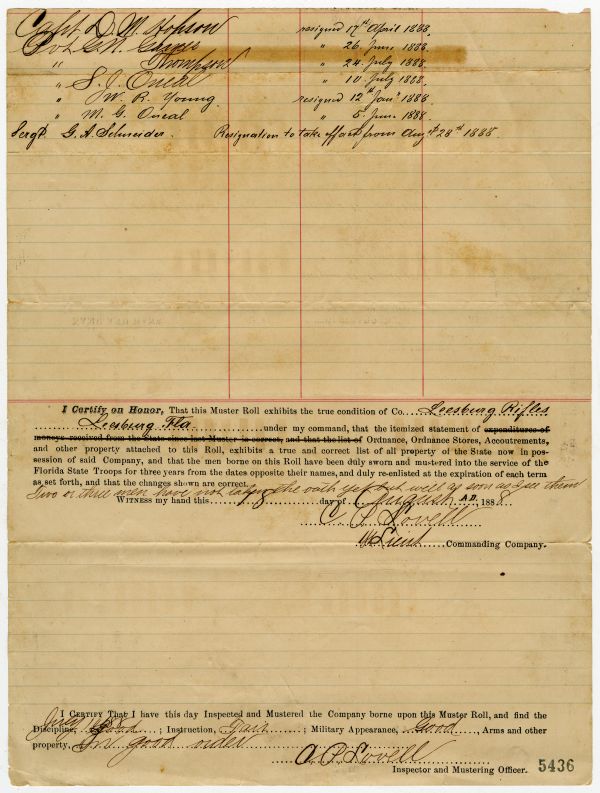 Capt D. M. Hopson resigned 17th April 1888.
Pvt G. N. " 26 June 1888.
" Thompson " 24 July 1888
" S. J. Oneal " 10 July 1888
" W. R. Young resigned 12th Jany 1888.
" M. G. Oneal " 5 June 1888
Sergt G. A. Schneider. Resignation to take effect from Augst 28th 1888
I Certify on Honor, That this Muster Roll exhibits the true condition of Co. Leesburg Rifles
Leesburg Fla under my command, that the itemized statement of expenditures of
moneys received from the State since last Muster is correct, and that the list of Ordnance, Ordnance Stores, Accoutrements,
and other property attached to this Roll, exhibits a true and correct list of all property of the State now in pos-
session of said Company, and that the men borne on this Roll have been duly sworn and mustered into the service of the
Florida State Troops for three years from the dates opposite their names, and duly re-enlisted at the expiration of each term
as set forth, and that the changes shown are correct.
Two or three men have not taken the oath yet but will as soon as I see them
Witness my hand this day of August A.D., 1888
C. P. Lovell
1st Lieut Commanding Company.
I Certify That I have this day Inspected and Mustered the Company borne upon this Muster Roll, and find the
Discipline, Good ; Instruction, Fair ; Military Appearance, Good, Arms and other
property, In good order
C. P. Lovell
Inspector and Mustering Officer. 5436